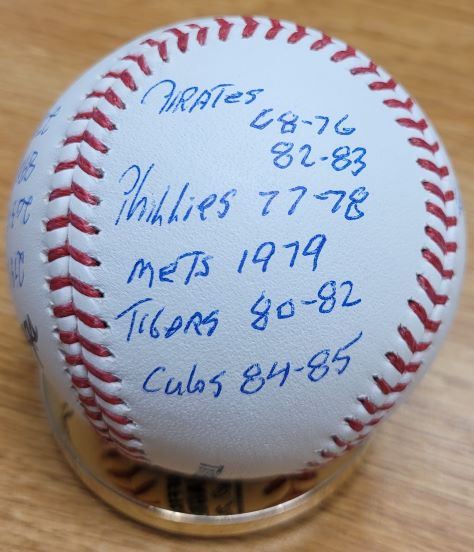 PIRATES
68-76
82-83
Phillies 77-78
METS 1979
TIGERS 80-82
Cubs 84-85